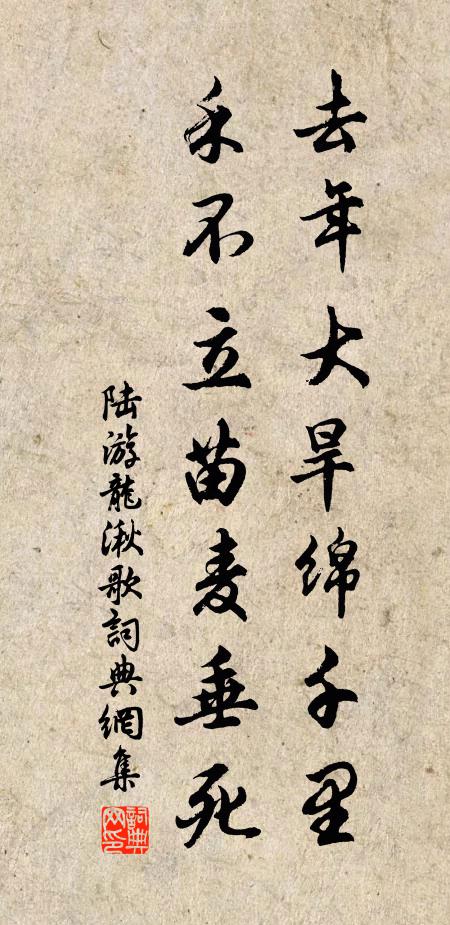 去年大旱绵千里
禾不立苗麦垂死
陆游龍湫歌詞典網集
詞典网印